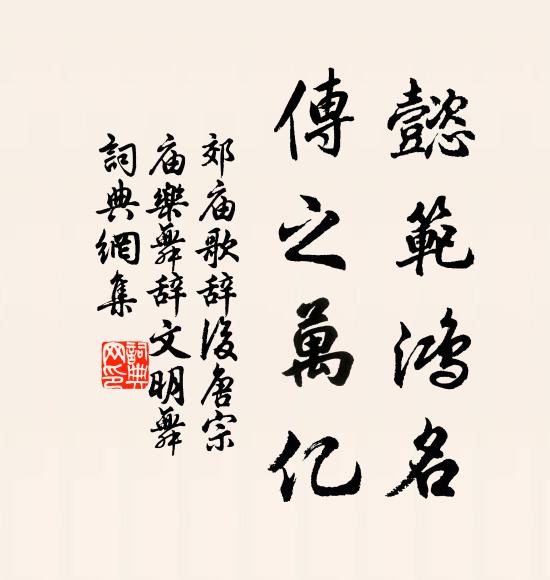 懿範鸿名
傳之萬亿
郊庙歌辞後唐宗
庙樂舞辞文明舞
詞典網集
詞典
网印